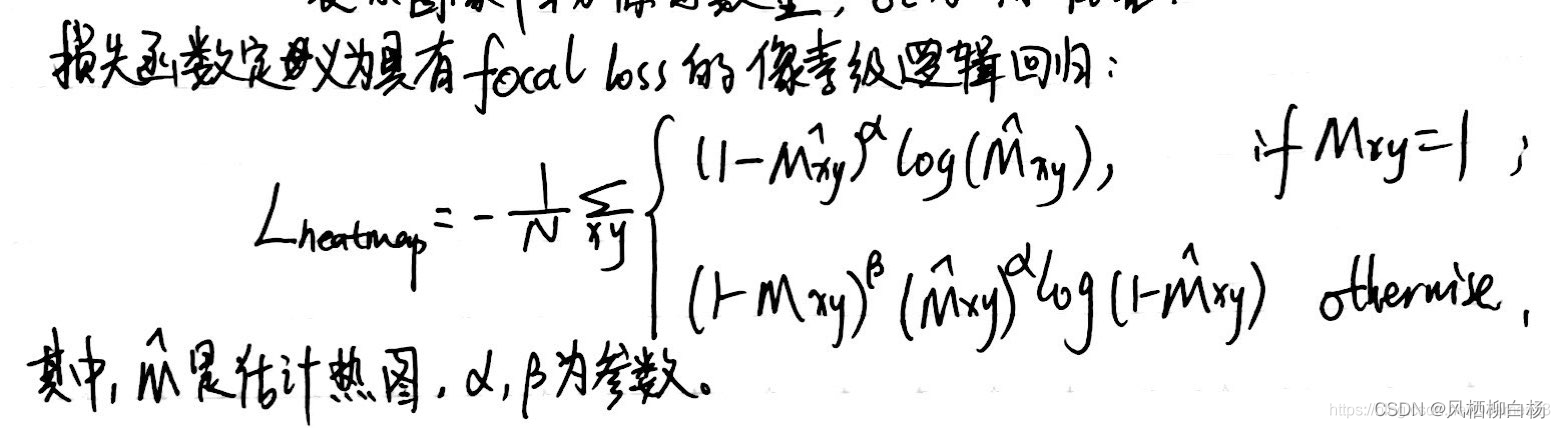 损失函数定义为具有 focal loss 的像素级逻辑回归:
L_heatmap = -1/N Σ_xy { (1-M̂xy)^α log(M̂xy), if Mxy=1;
(1-Mxy)^β (M̂xy)^α log(1-M̂xy) otherwise,
其中, M̂ 是估计热图, α, β为参数。
CSDN @风栖柳白杨